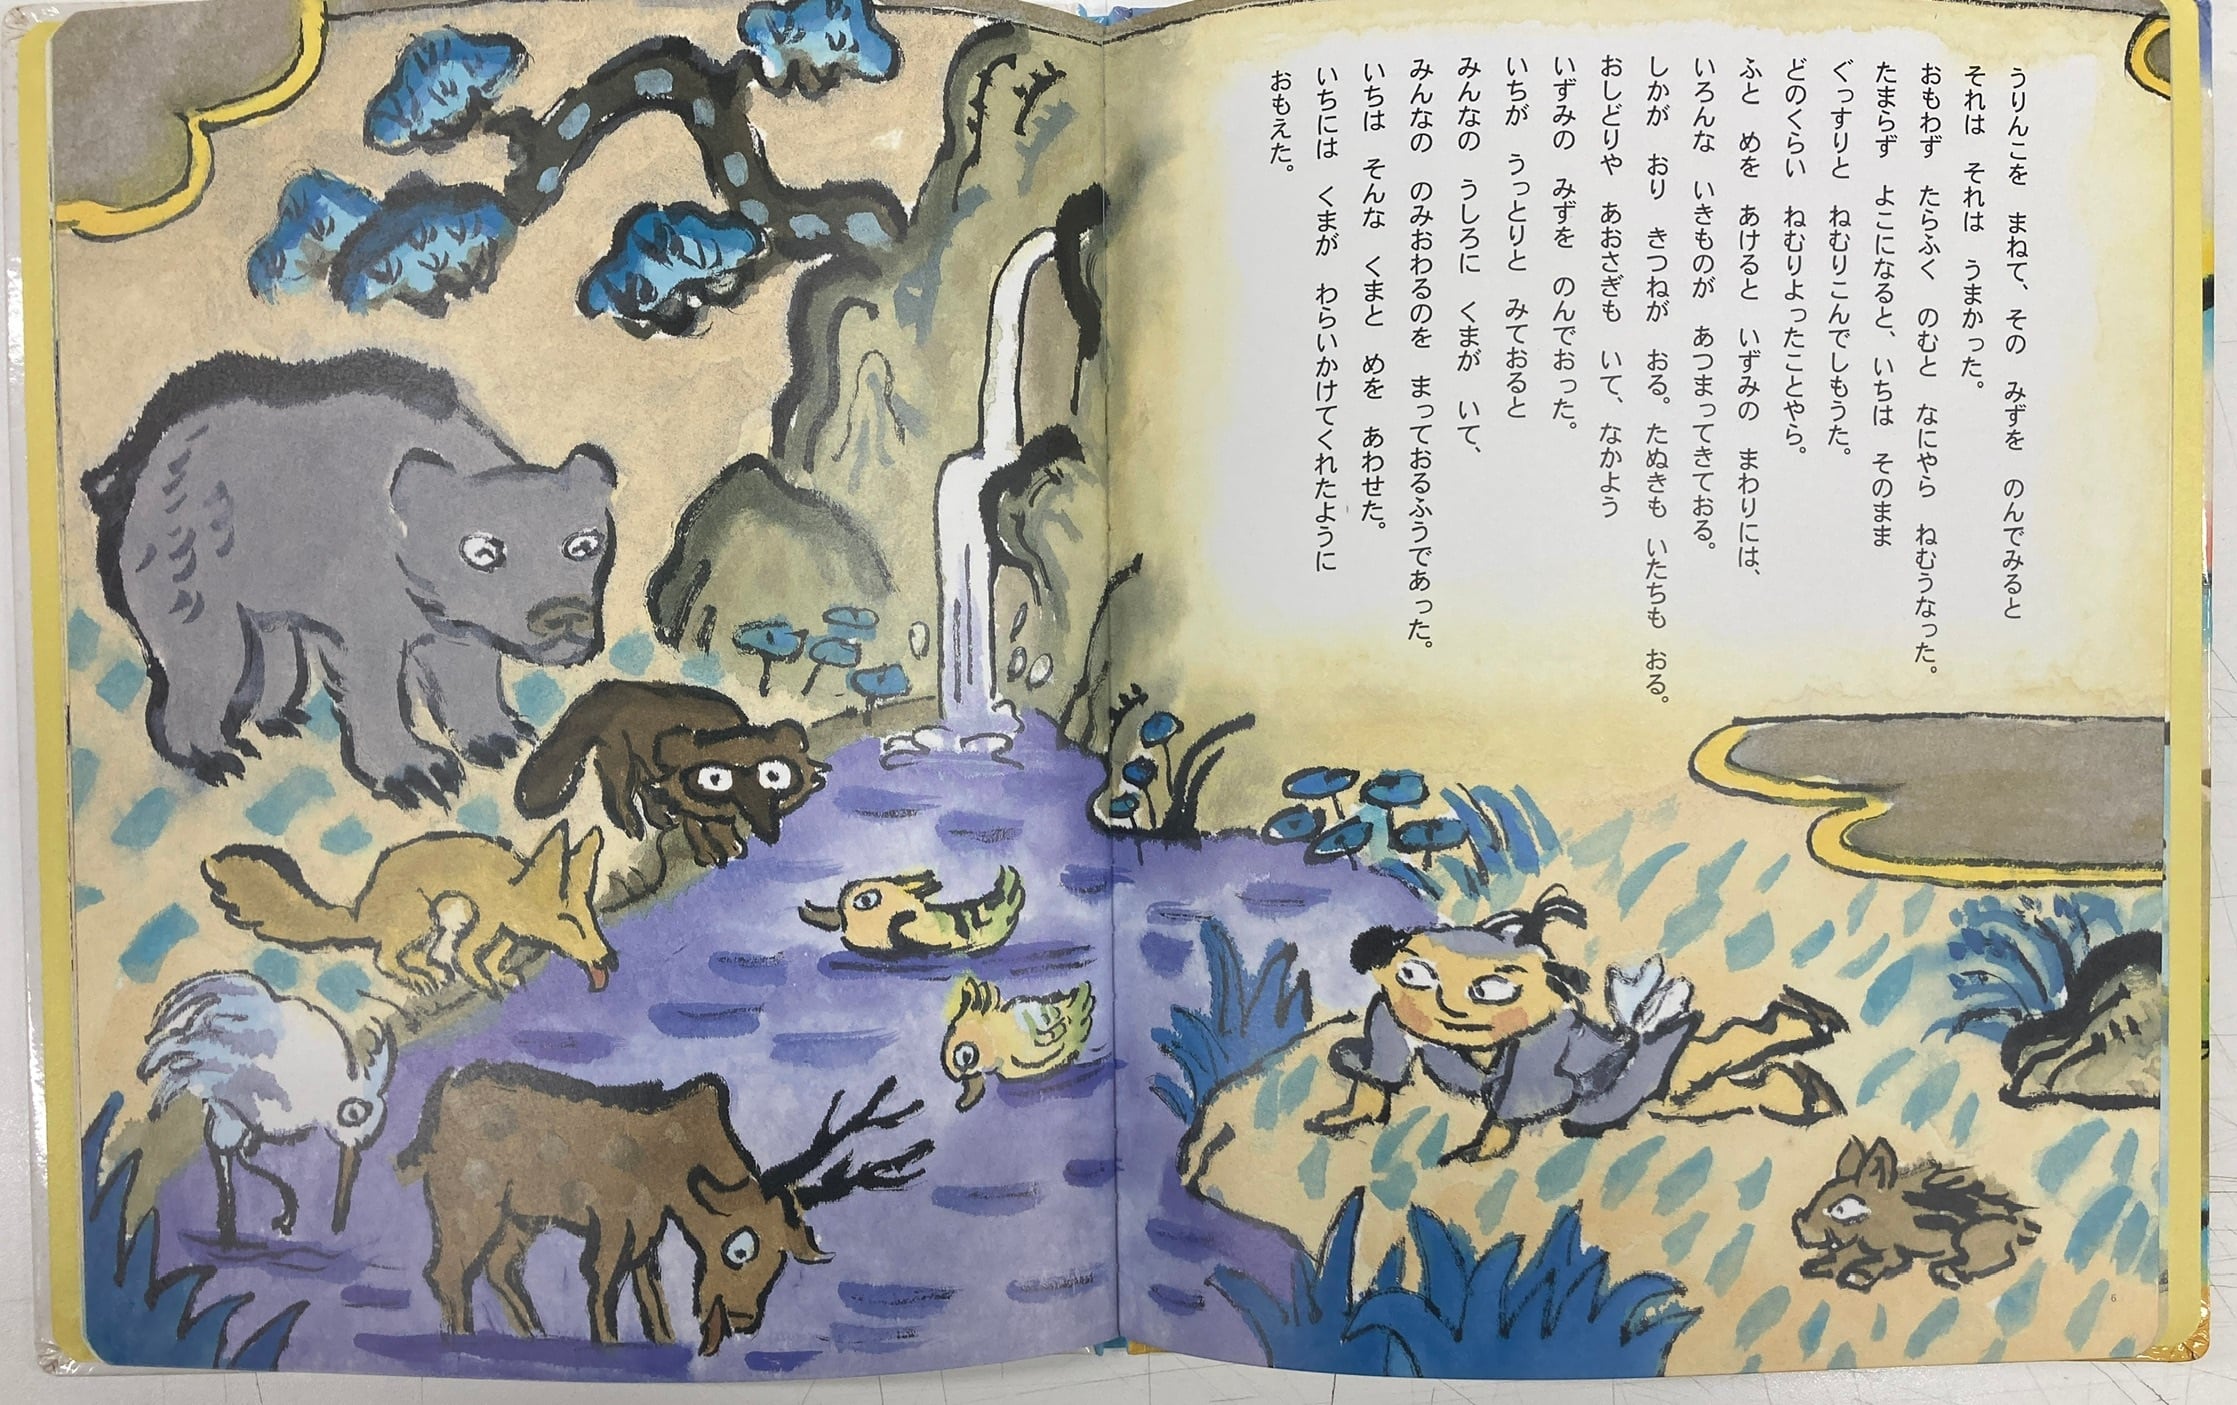 うりんこを　まねて、その　みずを　のんでみると
それは　それは　うまかった。
おもわず　たらふく　のむと　なにやら　ねむうなった。
たまらず　よこになると、いちは　そのまま
ぐっすりと　ねむりこんでしもうた。
どのくらい　ねむりよったことやら。
ふと　めを　あけると　いずみの　まわりには、
いろんな　いきものが　あつまってきておる。
しかが　おり　きつねが　おる。たぬきも　いたちも　おる。
おしどりや　あおさぎも　いて、なかよう
いずみの　みずを　のんでおった。
いちが　うっとりと　みておると
みんなの　うしろに　くまが　いて、
みんなの　のみおわるのを　まっておるふうであった。
いちは　そんな　くまと　めを　あわせた。
いちには　くまが　わらいかけてくれたように
おもえた。
6